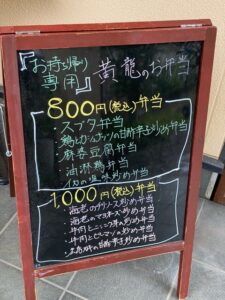 『お持ち帰り
専用』 黄龍のお弁当
800円(税込)弁当
・スブタ弁当
・鶏とカシューナッツの甘酢辛子炒め弁当
・麻婆豆腐弁当
・油淋鶏弁当
・イカの塩味炒め弁当
1,000円(税込)弁当
・海老のチリソース炒め弁当
・海老のマヨネーズ炒め弁当
・牛肉とニンニク芽の炒め弁当
・牛肉とピーマンの炒め弁当
の甘酢辛子炒め弁当